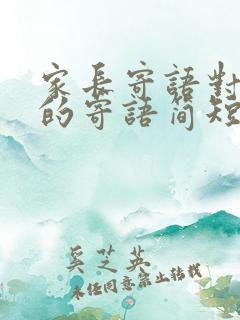 家長寄語對
的寄語簡短
奚芝英
未经同意禁止转载